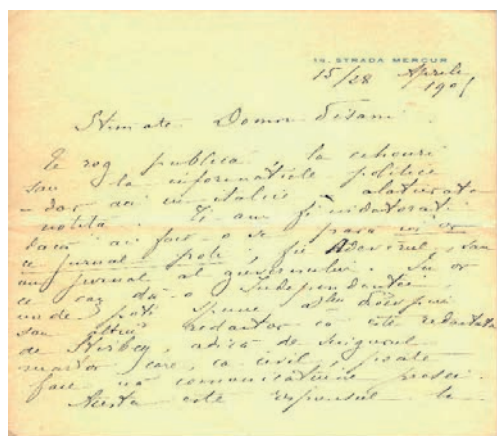 14, STRADA MERCUR
15/28 Aprilie
1905
Stimate Domn Tisani
Te rog publică, la echouri
sau la informațiile politice
- dar nu in italice alaturata
notiță. Ți-am fi indatorat
dacă ai face-o se para in or
ce jurnal poti, fie Adeverul, sau
un jurnal al guvernului. In or
ce caz dă-o Independentei,
unde poti spune
sau redactor că este redactata
de Știrbey, adică de singurul
martor care, ca civil, poate
face nă comunicatiune presei.
Acesta este responsul la